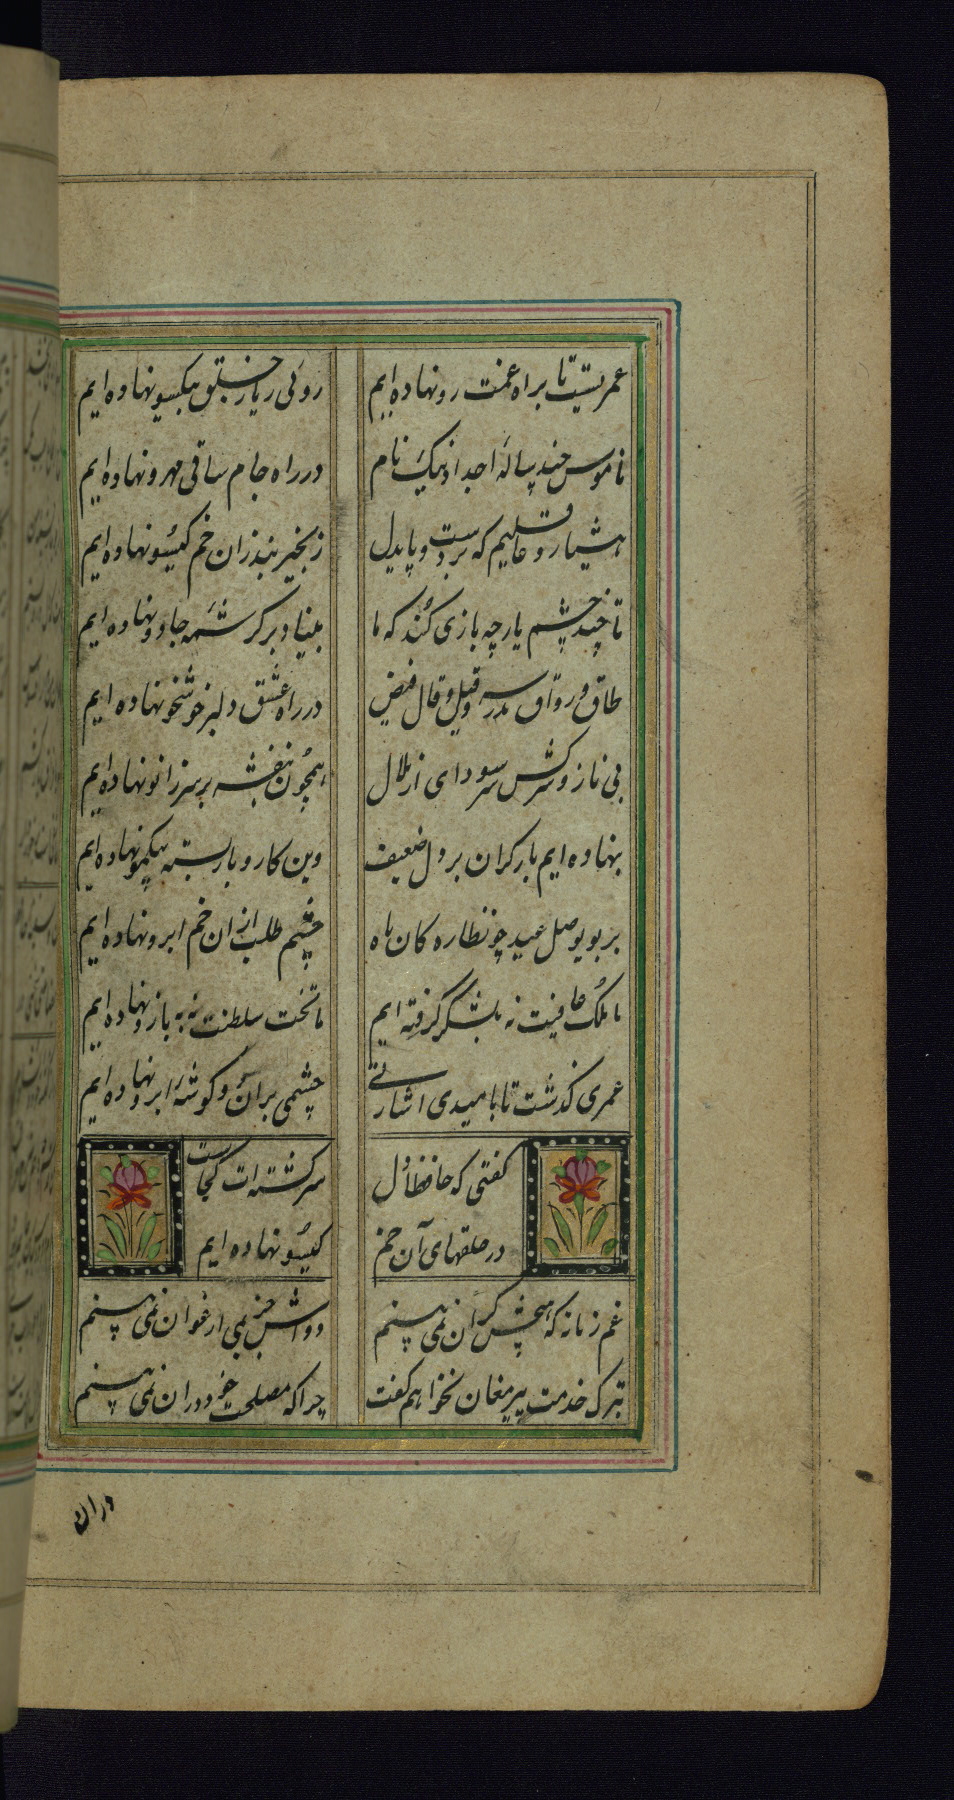 عمریست تا براه غمت رو نهاده ایم
روی ریاز خلق بیکسو نهاده ایم
ناموس چند ساله اجداد نیک نام
در راه جام ساقی مهرو نهاده ایم
هشیار و عاقلیم که بر دست و پای دل
زنجیر بند زان خم کیسو نهاده ایم
تا چند چشم یار چه بازی کند که ما
بنیاد بر کرشمه جادو نهاده ایم
طاق و رواق مدرسه و قیل و قال فیض
در راه عشق دلبر خوشخو نهاده ایم
بی ناز و سرکش سر سودای از ملال
همچون بنفشه بر سر زانو نهاده ایم
بنهاده ایم بار کران بر دل ضعیف
وین کار و بار بسته بیکمو نهاده ایم
بر بوی وصل عید چو نظاره کان ماه
چشم طلب از ان خم ابرو نهاده ایم
ما ملک عافیت نه بلشکر گرفته ایم
ما تخت سلطنت نه به بازو نهاده ایم
عمری کذشت تا بامیدی اشارتی
چشمی بران دو کوشه ابرو نهاده ایم
کفتی که حافظا دل
سرکشته ات کجاست
در حلقهای آن خم
کیسو نهاده ایم
غم زمانه که هیچش کران نمی بینم
دواش جز می ارغوان نمی بینم
بترک خدمت پیر مغان نخواهم کفت
چرا که مصلحت خود دران نمی بینم
دران